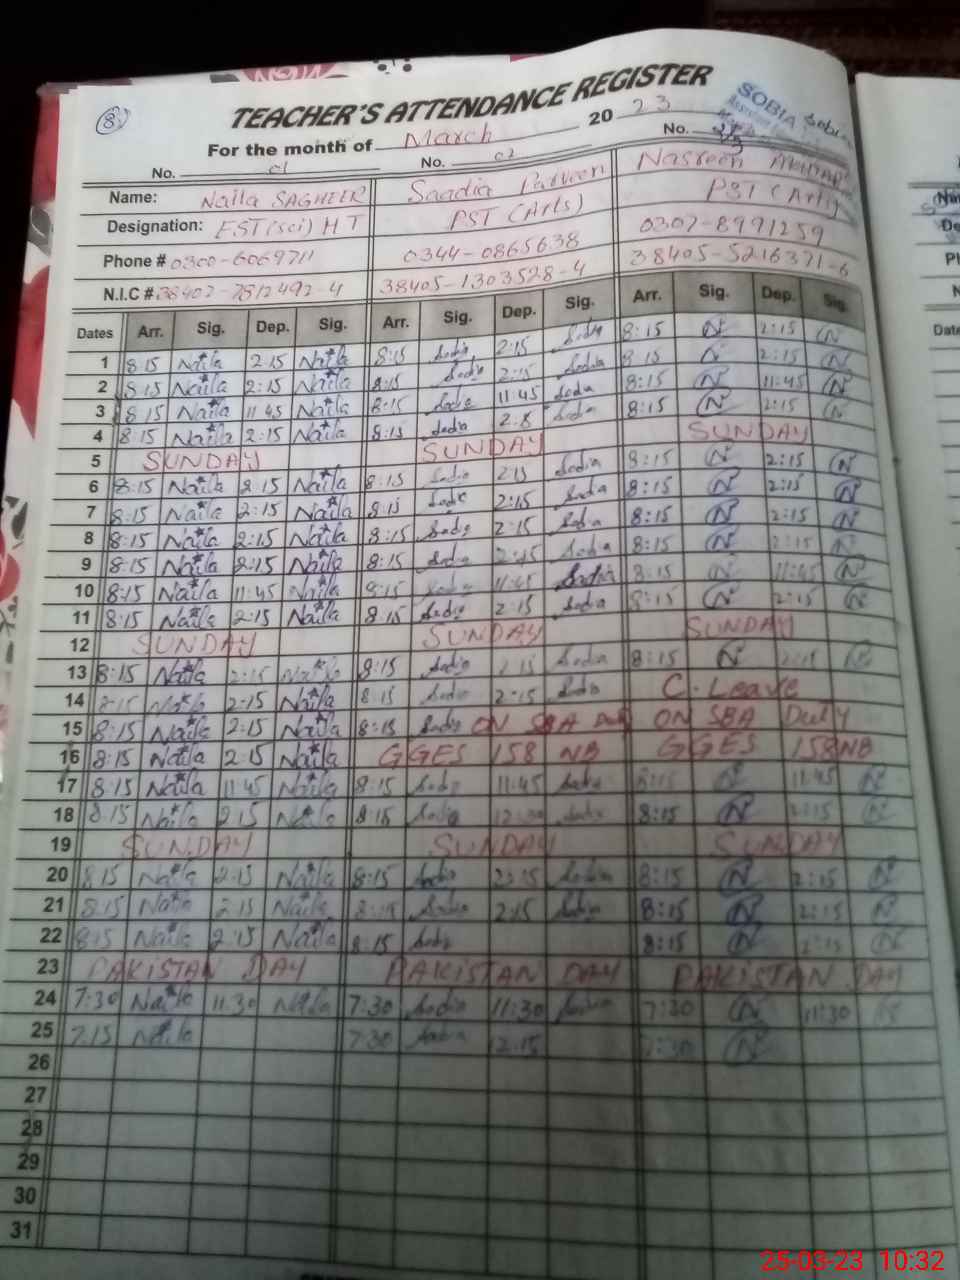 8
TEACHER'S ATTENDANCE REGISTER
For the month of March 2023
SOBIA
No. 01 No. 02 No.
Name: Naila SAGHEER Saadia Parveen Nasreen AKHTAR
Designation: EST(sci) HT PST (Arts) PST (Arts)
Phone # 0300-6069711 0344-0865638 0307-8991259
N.I.C # 38402-7812492-4 38405-1303528-4 38405-5216371-6
Dates Arr. Sig. Dep. Sig. Arr. Sig. Dep. Sig. Arr. Sig. Dep. Sig.
1 8:15 Naila 2:15 Naila 8:15 Sadia 2:15 Sadia 8:15 N 2:15 N
2 8:15 Naila 2:15 Naila 8:15 Sadia 2:15 Sadia 8:15 N 2:15 N
3 8:15 Naila 11:45 Naila 8:15 Sadia 11:45 Sadia 8:15 N 11:45 N
4 8:15 Naila 2:15 Naila 8:15 Sadia 8:15 N 2:15 N
5 SUNDAY SUNDAY SUNDAY
6 8:15 Naila 2:15 Naila 8:15 Sadia 2:15 Sadia 8:15 N 2:15 N
7 8:15 Naila 2:15 Naila 8:15 Sadia 2:15 Sadia 8:15 N 2:15 N
8 8:15 Naila 2:15 Naila 8:15 Sadia 2:15 Sadia 8:15 N 2:15 N
9 8:15 Naila 2:15 Naila 8:15 Sadia 2:15 Sadia 8:15 N 2:15 N
10 8:15 Naila 11:45 Naila 8:15 Sadia 11:45 Sadia 8:15 N 11:45 N
11 8:15 Naila 2:15 Naila 8:15 Sadia 2:15 Sadia 8:15 N 2:15 N
12 SUNDAY SUNDAY SUNDAY
13 8:15 Naila 2:15 Naila 8:15 Sadia 2:15 Sadia 8:15 N 2:15 N
14 8:15 Naila 2:15 Naila 8:15 Sadia 2:15 Sadia C. Leave
15 8:15 Naila 2:15 Naila 8:15 Sadia ON SBA Duty ON SBA Duty
16 8:15 Naila 2:15 Naila GGES 158 NB GGES 158 NB
17 8:15 Naila 11:45 Naila 8:15 Sadia 11:45 Sadia 8:15 N 11:45 N
18 8:15 Naila 2:15 Naila 8:15 Sadia 12:30 Sadia 8:15 N 2:15 N
19 SUNDAY SUNDAY SUNDAY
20 8:15 Naila 2:15 Naila 8:15 Sadia 2:15 Sadia 8:15 N 2:15 N
21 8:15 Naila 2:15 Naila 8:15 Sadia 2:15 Sadia 8:15 N 2:15 N
22 8:15 Naila 2:15 Naila 8:15 Sadia 8:15 N 2:15 N
23 PAKISTAN DAY PAKISTAN DAY PAKISTAN DAY
24 7:30 Naila 11:30 Naila 7:30 Sadia 11:30 Sadia 7:30 N 11:30 N
25 7:15 Naila 7:30 Sadia 12:15 7:30 N
26
27
28
29
30
31
25-03-23 10:32